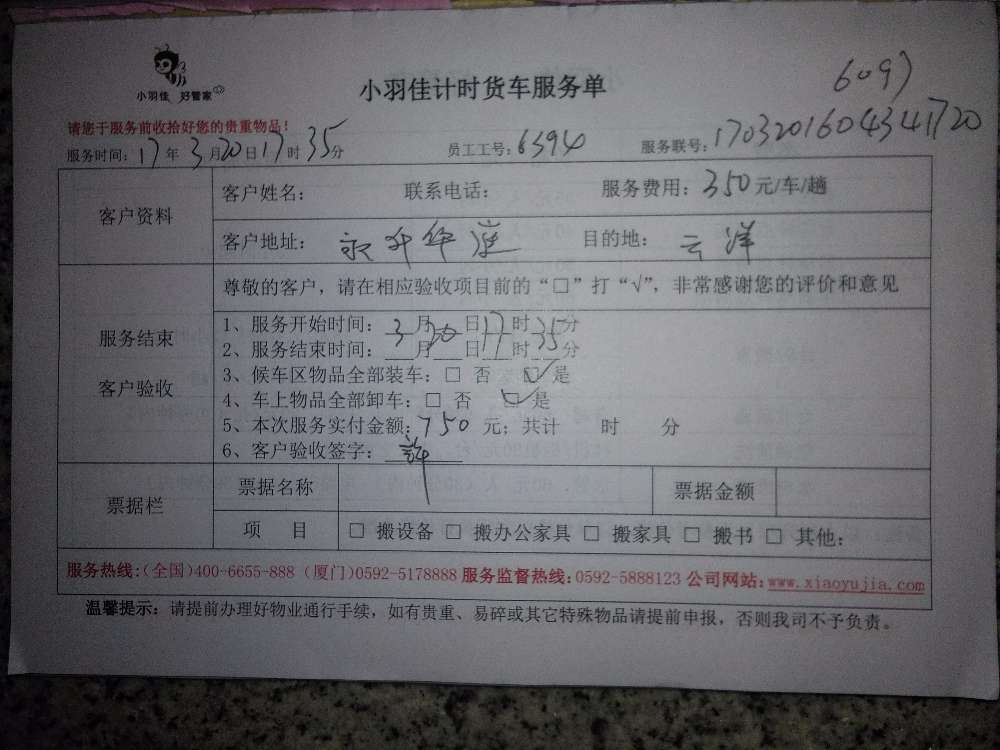 小羽佳 好管家
小羽佳计时货车服务单
6097
请您于服务前收拾好您的贵重物品！
服务时间：17年3月20日17时35分 员工工号：6394 服务联号：1703201604341720
客户资料
客户姓名： 联系电话： 服务费用：350元/车/趟
客户地址：永升华庭 目的地：云洋
服务结束
客户验收
尊敬的客户，请在相应验收项目前的“□”打“√”，非常感谢您的评价和意见
1、服务开始时间：3月20日17时35分
2、服务结束时间：__月__日__时__分
3、候车区物品全部装车：□ 否 ☑ 是
4、车上物品全部卸车：□ 否 ☑ 是
5、本次服务实付金额：750元；共计 时 分
6、客户验收签字：許
票据栏
票据名称 票据金额
项 目 □ 搬设备 □ 搬办公家具 □ 搬家具 □ 搬书 □ 其他：
服务热线:(全国)400-6655-888 (厦门)0592-5178888 服务监督热线:0592-5888123 公司网站:www.xiaoyujia.com
温馨提示：请提前办理好物业通行手续，如有贵重、易碎或其它特殊物品请提前申报，否则我司不予负责。